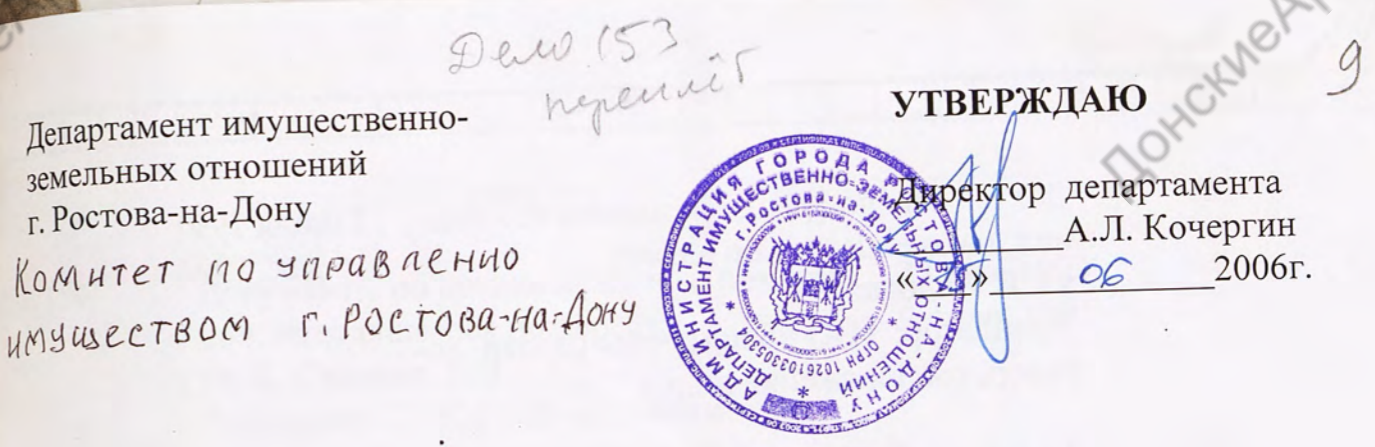 Дело 153
переплёт
9
Департамент имущественно-
земельных отношений
г. Ростова-на-Дону
Комитет по управлению
имуществом г. Ростова-на-Дону
УТВЕРЖДАЮ
Директор департамента
А.Л. Кочергин
«__»06 2006г.
АДМИНИСТРАЦИЯ ГОРОДА РОСТОВА-НА-ДОНУ
ДЕПАРТАМЕНТ ИМУЩЕСТВЕННО-ЗЕМЕЛЬНЫХ ОТНОШЕНИЙ
г. Ростова-на-Дону
ОГРН 1026103305304